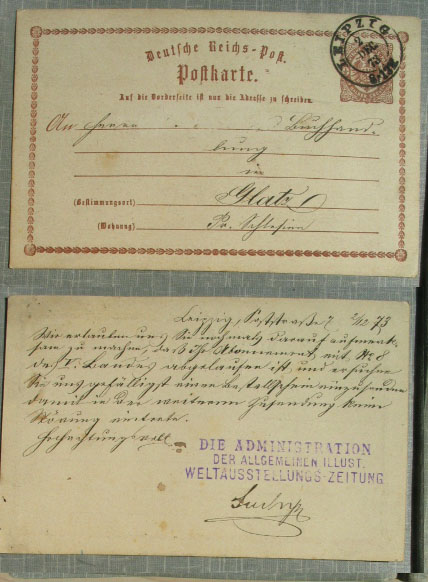 Deutsche Reichs-Post.
Postkarte.
Auf die Vorderseite ist nur die Adresse zu schreiben.
LEIPZIG
2
DEC
73
An Herrn Buchhand-
lung
in
(Bestimmungsort) Glatz
(Wohnung) Pr. Schlesien
Leipzig, Poststraße 7 2/12 73
Wir erlauben uns Sie nochmals darauf aufmerk-
sam zu machen, daß Ihr Abonnement mit No 8
des V. Bandes abgelaufen ist, und ersuchen
Sie uns gefälligst einen Bestellschein einzusenden
damit in der weiteren Zusendung keine
Störung eintrete.
Hochachtungsvoll
DIE ADMINISTRATION
DER ALLGEMEINEN ILLUST.
WELTAUSSTELLUNGS-ZEITUNG